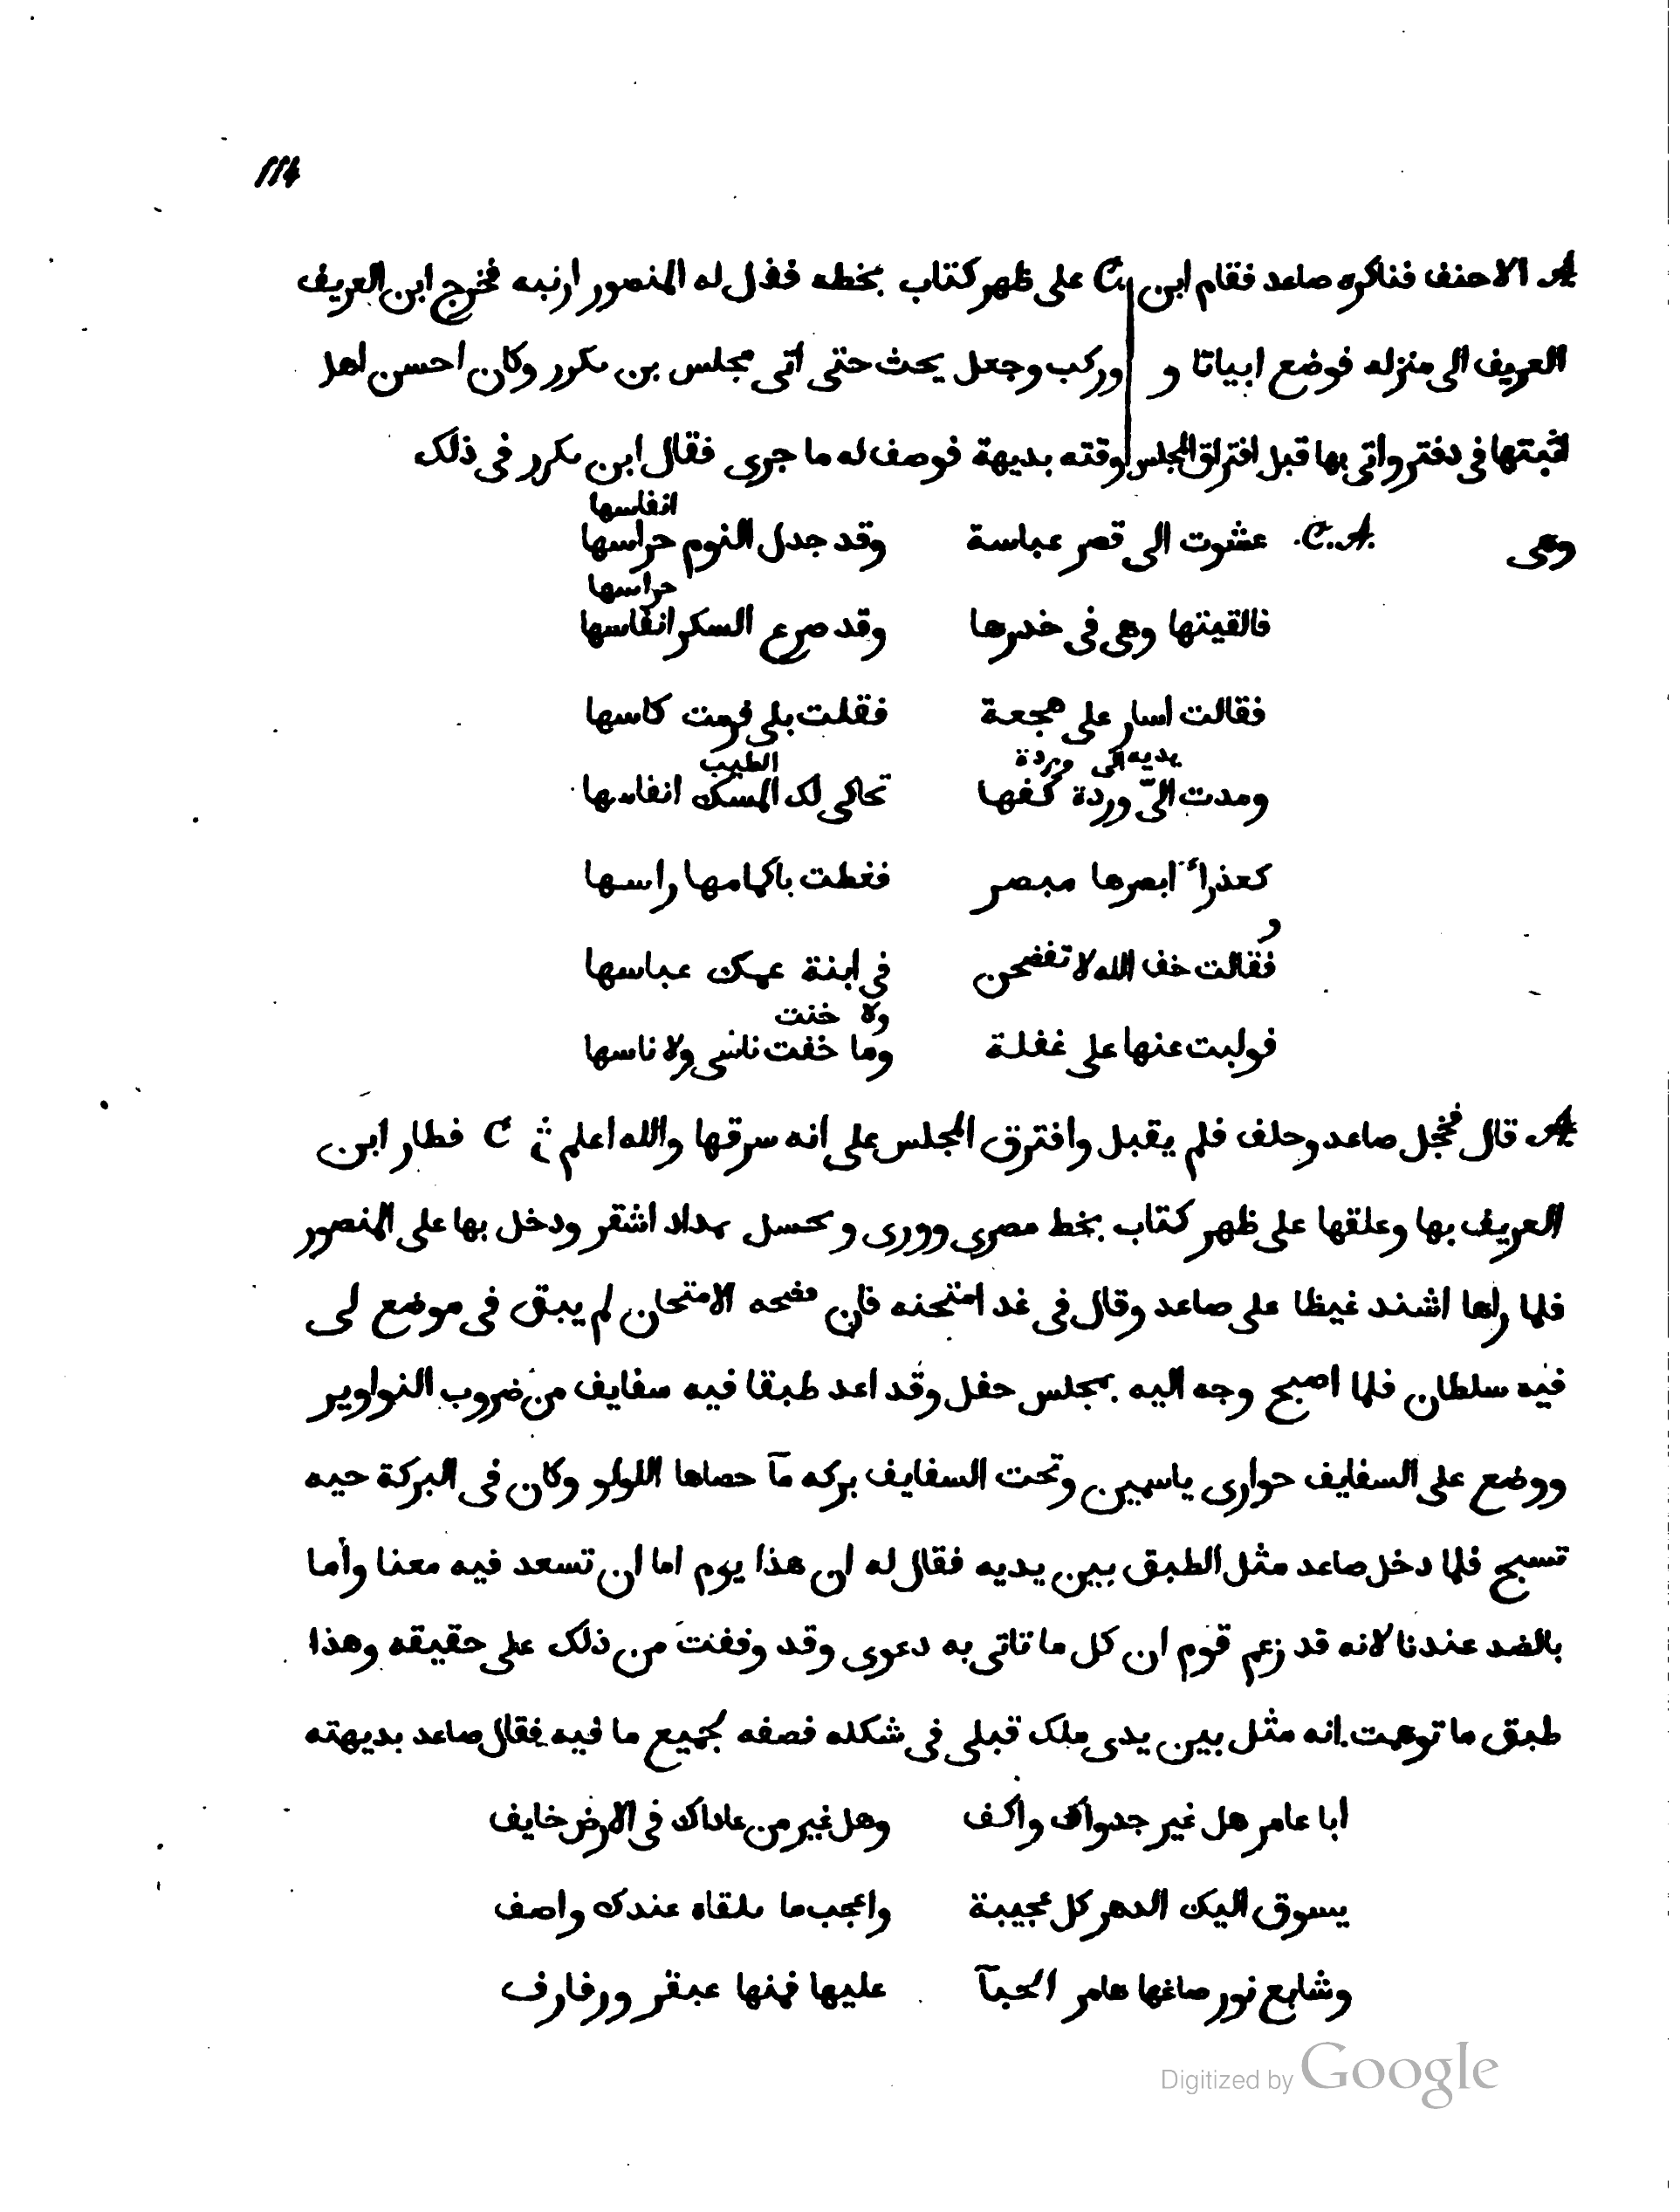 114
A الاحنف فناكره صاعد فقام ابن C على ظهر كتاب بخطه فقل له المنصور ارنيه فخرج ابن العريف
العريف الى منزله فوضع ابياتا و وركب وجعل يحث حتى اتى مجلس بن بكرر وكان احسن اهل
اثبتها فى دفتر واتى بها قبل افتراق المجلس وقته بديهة فوصف له ما جرى فقال ابن بكرر فى ذلك
انفاسها
وهى C.A. عشوت الى قصر عباسة وقد جدل النوم حراسها
حراسها
فالقيتها وهى فى خدرها وقد صرع السكر انفاسها
فقالت اسار على هجعة فقلت بلى فرمت كاسها
يديه الى وردة الطيب
ومدت الىّ وردة كفها تحاكى لك المسك انفاسها
كعذراء ابصرها مبصر فغطت باكمامها راسها
و
فقالت خف الله لا تفضحن فى ابنة عمك عباسها
ولا خنت
فوليت عنها على غفلة وما خفت ناسى ولا ناسها
A قال فخجل صاعد وحلف فلم يقبل وافترق المجلس على انه سرقها والله اعلم C فطار ابن
العريف بها وعلقها على ظهر كتاب بخط مصرى وورى بمداد اشقر ودخل بها على المنصور
فلما راها اشتد غيظا على صاعد وقال فى غد امتحنه فان فضحه الامتحان لم يبق فى موضع لى
فيه سلطان فلما اصبح وجه اليه بمجلس حفل وقد اعد طبقا فيه سفايف من ضروب النواوير
ووضع على السفايف حوارى ياسمين وتحت السفايف بركه مآ حصاها اللولو وكان فى البركة حيه
تسبح فلما دخل صاعد مثل الطبق بين يديه فقال له ان هذا يوم اما ان تسعد فيه معنا وأما
بالضد عندنا لانه قد زعم قوم ان كل ما تاتى به دعوى وقد وقفت من ذلك على حقيقه وهذا
طبق ما توهمت انه مثل بين يدى ملك قبلى فى شكله فصفه بجميع ما فيه فقال صاعد بديهته
ابا عامر هل غير جدواك واكف وهل غير من عاداك فى الارض خايف
يسوق اليك الدهر كل عجيبة واعجب ما يلقاه عندك واصف
وشايع نور صاغها هامر الحيآ عليها فمنها عبقر ورفارف
Digitized by Google